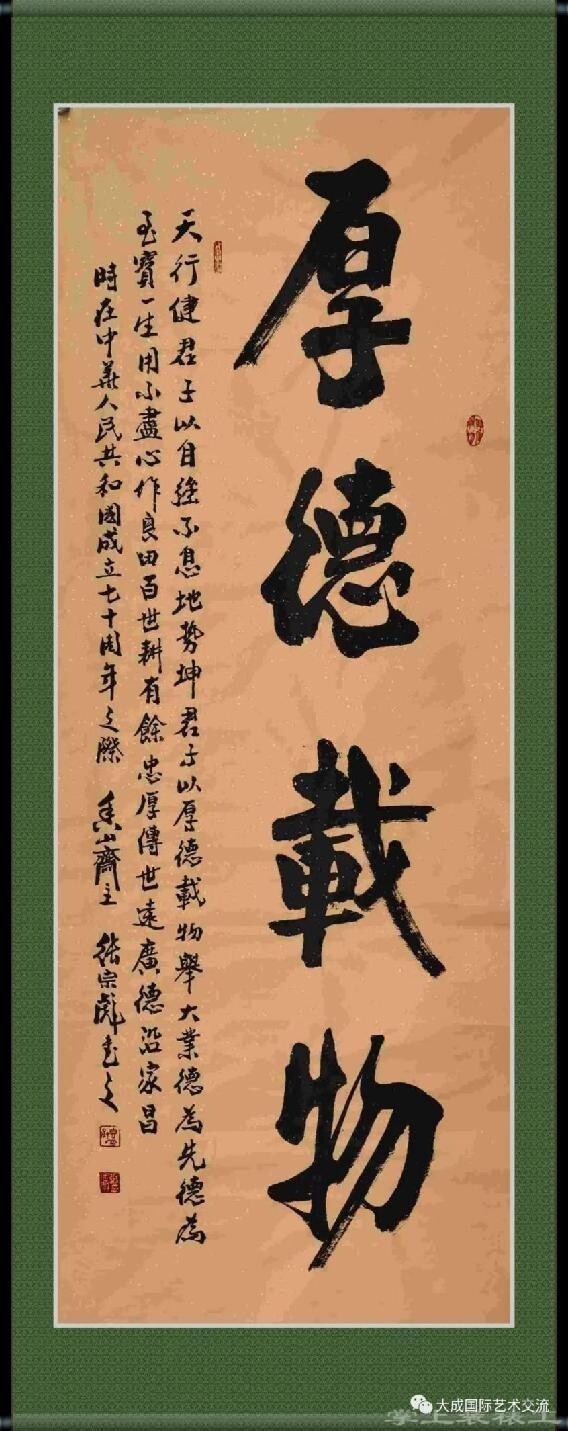 厚德載物
天行健君子以自強不息地势坤君子以厚德載物舉大業德為先德為
至寶一生用不盡心作良田百世耕有餘忠厚傳世遠廣德沿家昌
時在中華人民共和國成立七十周年之際 香山齋主 張宗彪书之
大成国际艺术交流
掌上装裱工